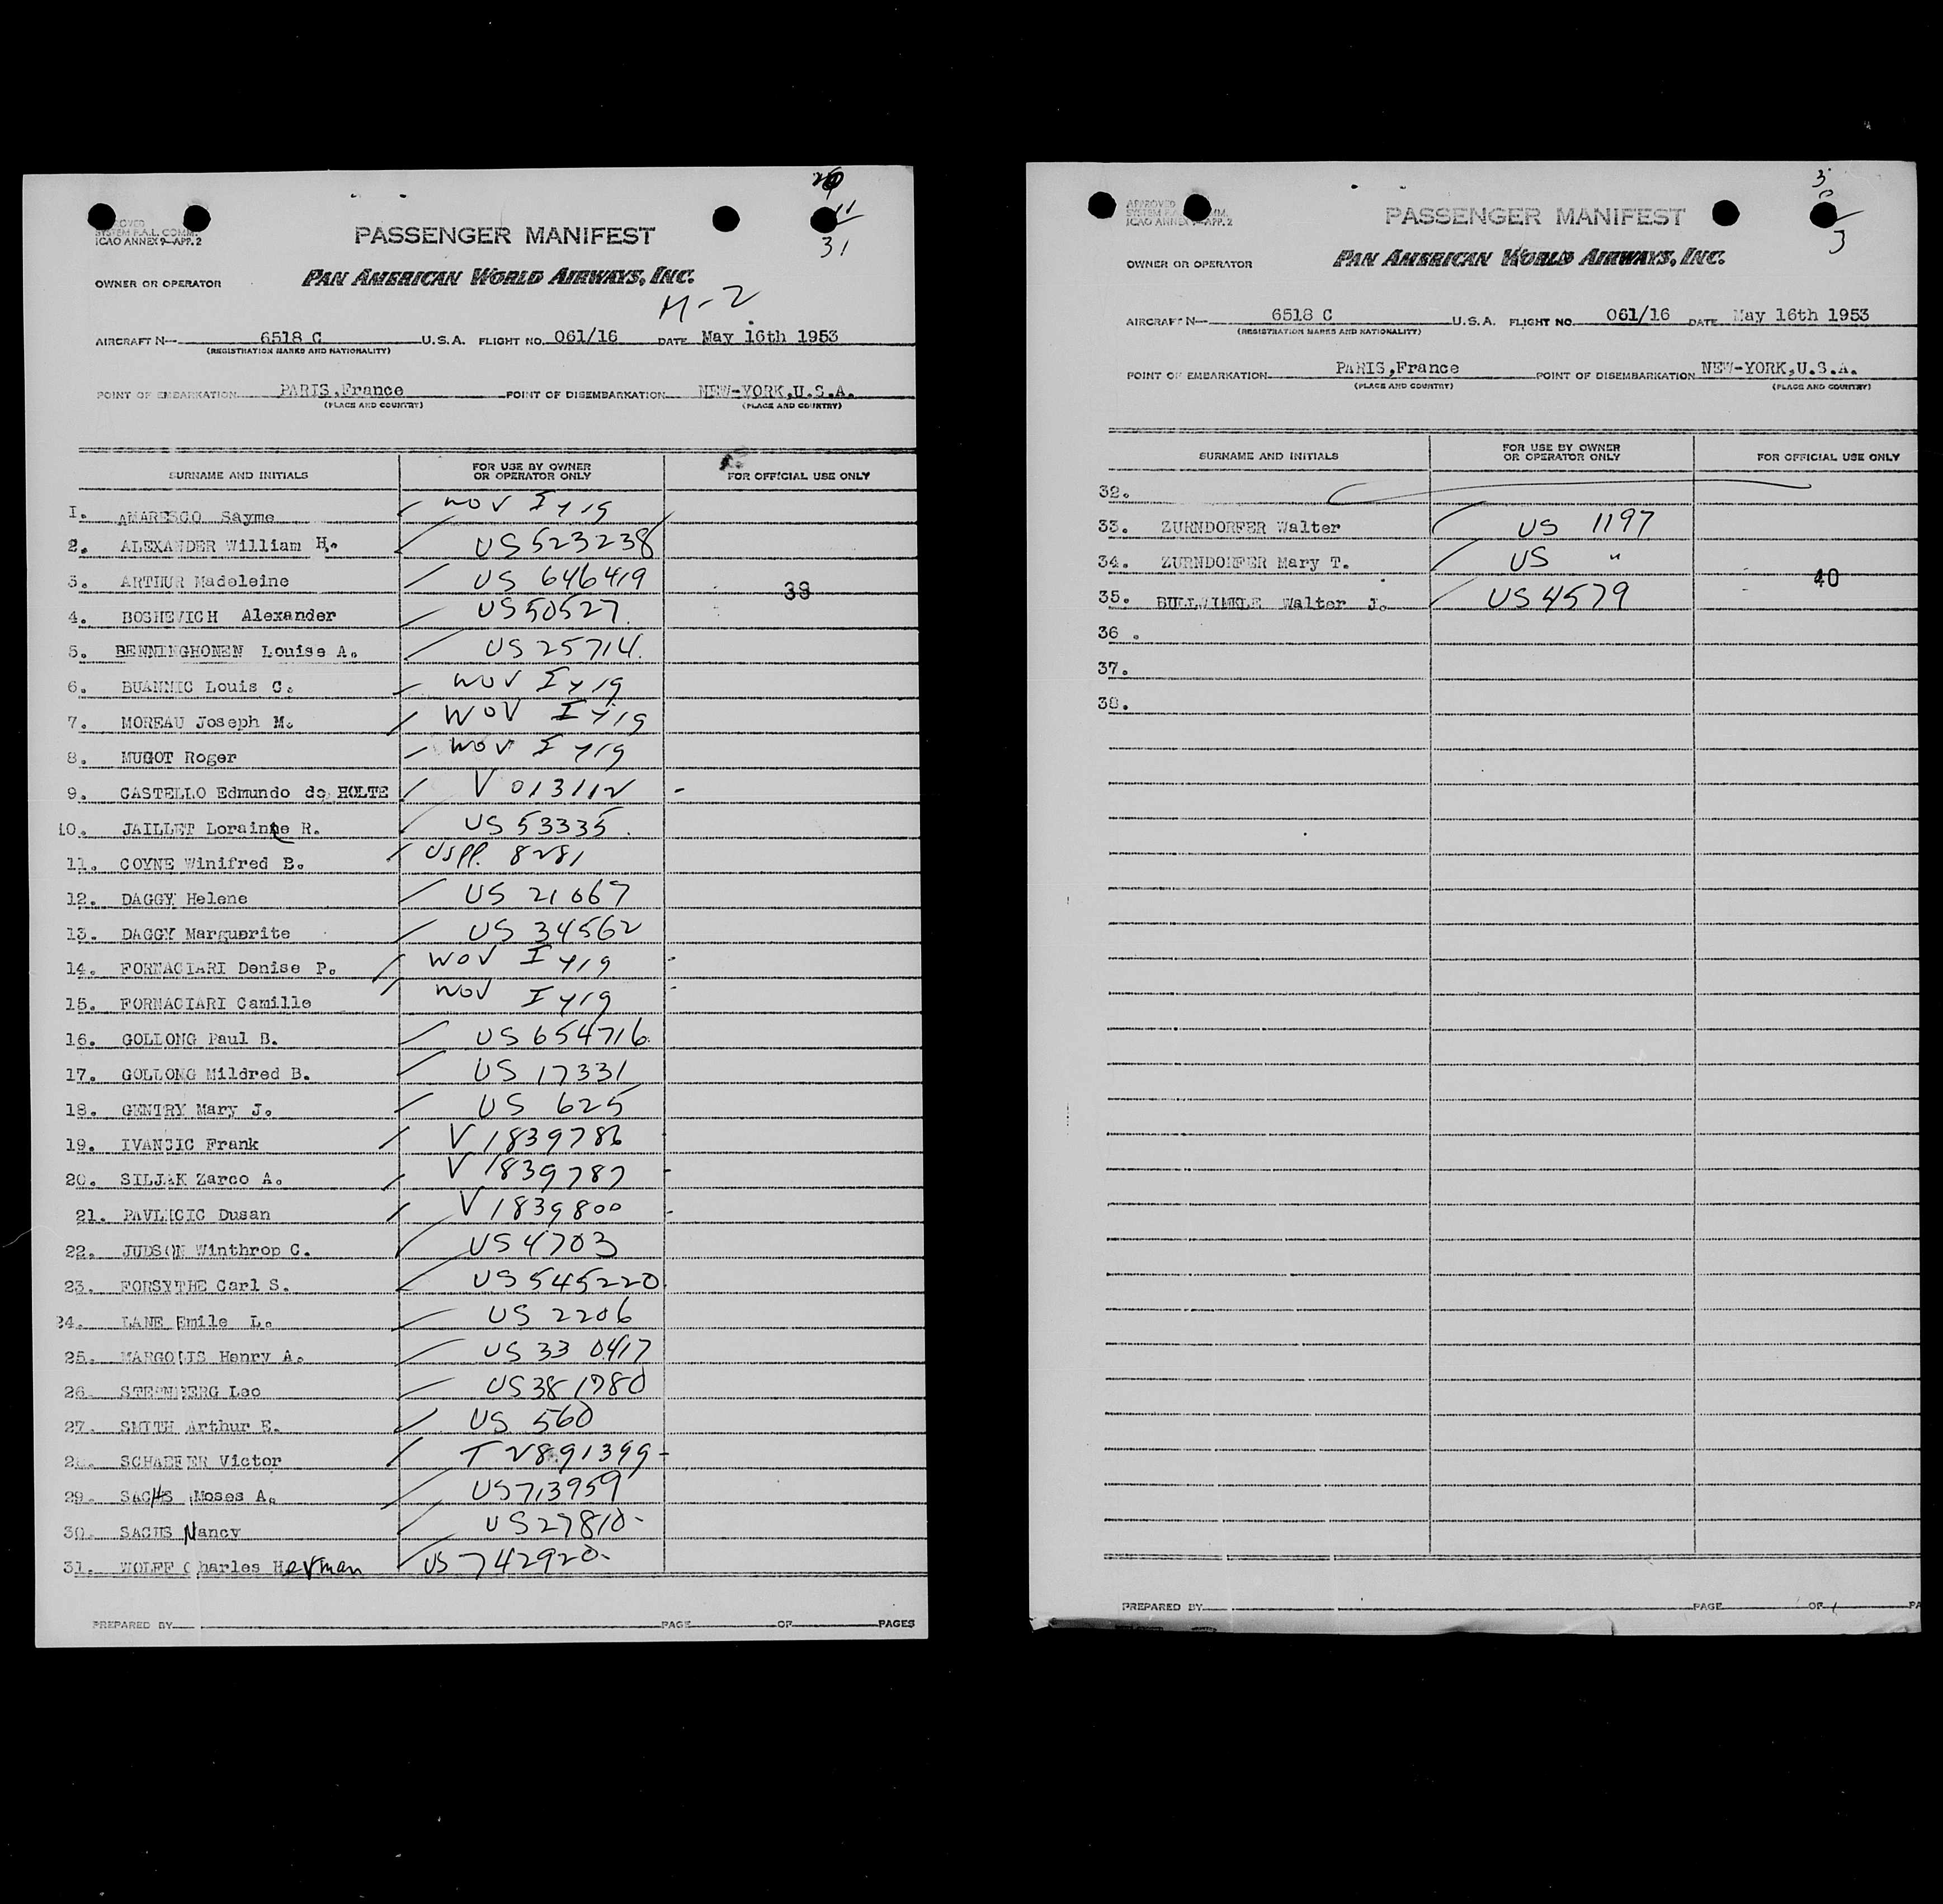 APPROVED
SYSTEM F.A.L. COMM.
ICAO ANNEX 9—APP. 2
11
31
PASSENGER MANIFEST
OWNER OR OPERATOR PAN AMERICAN WORLD AIRWAYS, INC.
M-2
AIRCRAFT N— 6518 C U.S.A. FLIGHT NO. 061/16 DATE May 16th 1953
(REGISTRATION MARKS AND NATIONALITY)
POINT OF EMBARKATION PARIS,France POINT OF DISEMBARKATION NEW-YORK,U.S.A.
(PLACE AND COUNTRY) (PLACE AND COUNTRY)
SURNAME AND INITIALS FOR USE BY OWNER OR OPERATOR ONLY FOR OFFICIAL USE ONLY
1. AMARESCO Sayme WOV I 419
2. ALEXANDER William H. US 523238
3. ARTHUR Madeleine US 646419
39
4. BOSHEVICH Alexander US 50527
5. BENNINGHONEN Louise A. US 25714
6. BUANNIC Louis C. WOV I 419
7. MOREAU Joseph M. WOV I 419
8. MUGOT Roger WOV I 419
9. CASTELLO Edmundo de HOLTE V 013112 -
10. JAILLET Lorraine R. US 53335
11. COYNE Winifred B. US PP. 8281
12. DAGGY Helene US 21067
13. DAGGY Marguerite US 34562
14. FORNACIARI Denise P. WOV I 419 -
15. FORNACIARI Camille WOV I 419 -
16. GOLLONG Paul B. US 654716
17. GOLLONG Mildred B. US 17331
18. GENTRY Mary J. US 625
19. IVANCIC Frank V 1839786 -
20. SILJAK Zarco A. V 1839787 -
21. PAVLICIC Dusan V 1839800 -
22. JUDSON Winthrop C. US 4703
23. FORSYTHE Carl S. US 545220
24. LANE Emile L. US 2206
25. MARGOLIS Henry A. US 330417
26. STERNBERG Leo US 381780
27. SMITH Arthur E. US 560
28. SCHAEFER Victor T 2891399 -
29. SACHS Moses A. US 713959
30. SACHS Nancy US 27810-
31. WOLFF Charles Herman US 742920-
PREPARED BY PAGE OF PAGES
APPROVED
SYSTEM F.A.L. COMM.
ICAO ANNEX 9—APP. 2
3
0
3
PASSENGER MANIFEST
OWNER OR OPERATOR PAN AMERICAN WORLD AIRWAYS, INC.
AIRCRAFT N— 6518 C U.S.A. FLIGHT NO. 061/16 DATE May 16th 1953
(REGISTRATION MARKS AND NATIONALITY)
POINT OF EMBARKATION PARIS,France POINT OF DISEMBARKATION NEW-YORK,U.S.A.
(PLACE AND COUNTRY) (PLACE AND COUNTRY)
SURNAME AND INITIALS FOR USE BY OWNER OR OPERATOR ONLY FOR OFFICIAL USE ONLY
32.
33. ZURNDORFER Walter US 1197
34. ZURNDORFER Mary T. US "
40
35. BULLWINKLE Walter J. US 4579
36.
37.
38.
PREPARED BY PAGE OF PA